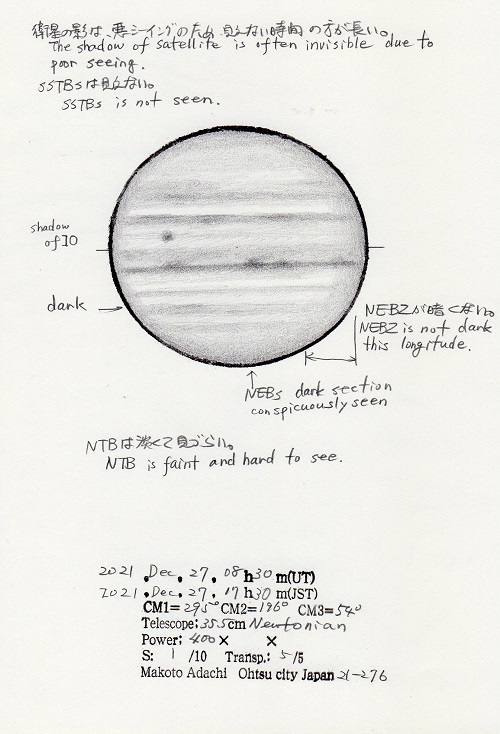 衛星の影は、悪シーイングのため、見えない時間の方が長い。
The shadow of satellite is often invisible due to
poor seeing.
SSTBsは見えない。
SSTBs is not seen.
shadow
of IO
dark
NEBZが暗くない。
NEBZ is not dark
this longitude.
NEBs dark section
conspicuously seen
NTBは淡くて見づらい。
NTB is faint and hard to see.
2021 . Dec. 27, 08 h 30 m(UT)
2021 . Dec. 27, 17 h 30 m(JST)
CM1= 295° CM2= 196° CM3= 540
Telescope: 35.5cm Newtonian
Power: 400 × ×
S: 1 /10 Transp.: 5 /5
Makoto Adachi Ohtsu city Japan 21-276